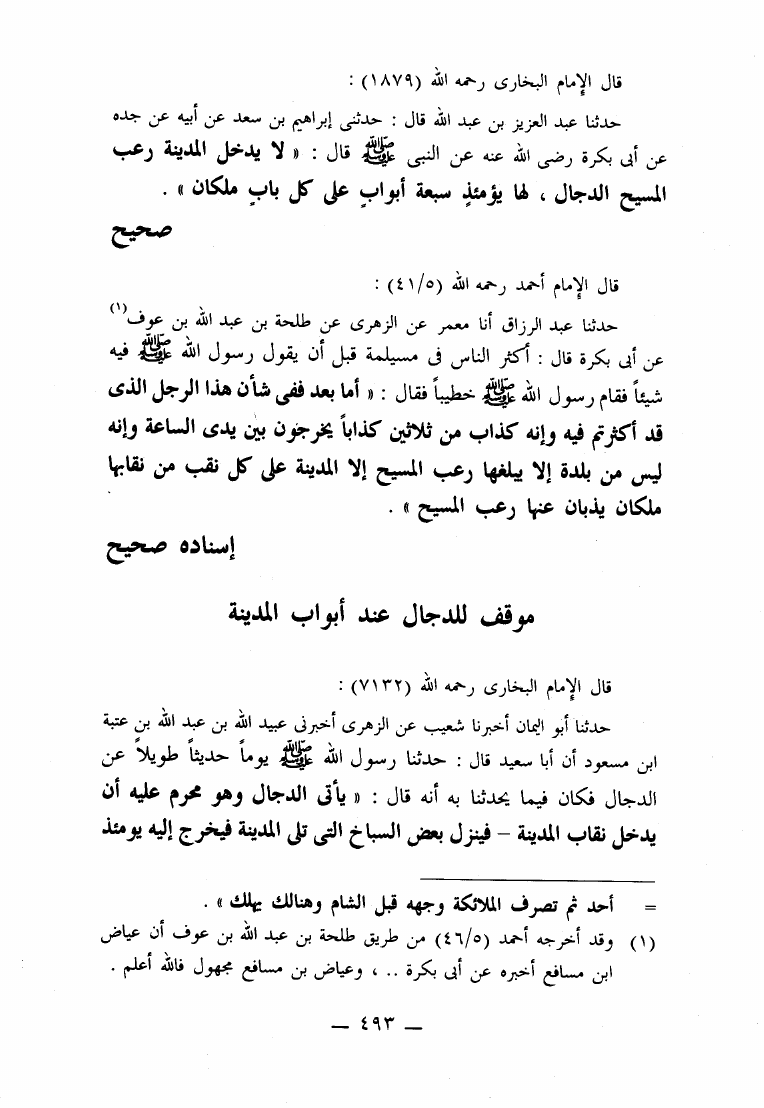 قال الإمام البخارى رحمه الله (١٨٧٩) :
حدثنا عبد العزيز بن عبد الله قال : حدثنى إبراهيم بن سعد عن أبيه عن جده
عن أبى بكرة رضى الله عنه عن النبى ﷺ قال : « لا يدخل المدينة رعب
المسيح الدجال ، لها يؤمئذٍ سبعة أبوابٍ على كل بابٍ ملكان » .
صحيح
قال الإمام أحمد رحمه الله (٤١/٥) :
حدثنا عبد الرزاق أنا معمر عن الزهرى عن طلحة بن عبد الله بن عوف(١)
عن أبى بكرة قال : أكثر الناس فى مسيلمة قبل أن يقول رسول الله ﷺ فيه
شيئاً فقام رسول الله ﷺ خطيباً فقال : « أما بعد ففى شأن هذا الرجل الذى
قد أكثرتم فيه وإنه كذاب من ثلاثين كذاباً يخرجون بين يدى الساعة وإنه
ليس من بلدة إلا يبلغها رعب المسيح إلا المدينة على كل نقب من نقابها
ملكان يذبان عنها رعب المسيح » .
إسناده صحيح
موقف للدجال عند أبواب المدينة
قال الإمام البخارى رحمه الله (٧١٣٢) :
حدثنا أبو اليمان أخبرنا شعيب عن الزهرى أخبرنى عبيد الله بن عبد الله بن عتبة
ابن مسعود أن أبا سعيد قال : حدثنا رسول الله ﷺ يوماً حديثاً طويلاً عن
الدجال فكان فيما يحدثنا به أنه قال : « يأتى الدجال وهو محرم عليه أن
يدخل نقاب المدينة – فينزل بعض السباخ التى تلى المدينة فيخرج إليه يومئذ
= أحد ثم تصرف الملائكة وجهه قبل الشام وهنالك يهلك » .
(١) وقد أخرجه أحمد (٤٦/٥) من طريق طلحة بن عبد الله بن عوف أن عياض
ابن مسافع أخبره عن أبى بكرة .. ، وعياض بن مسافع مجهول فالله أعلم .
— ٤٩٣ —